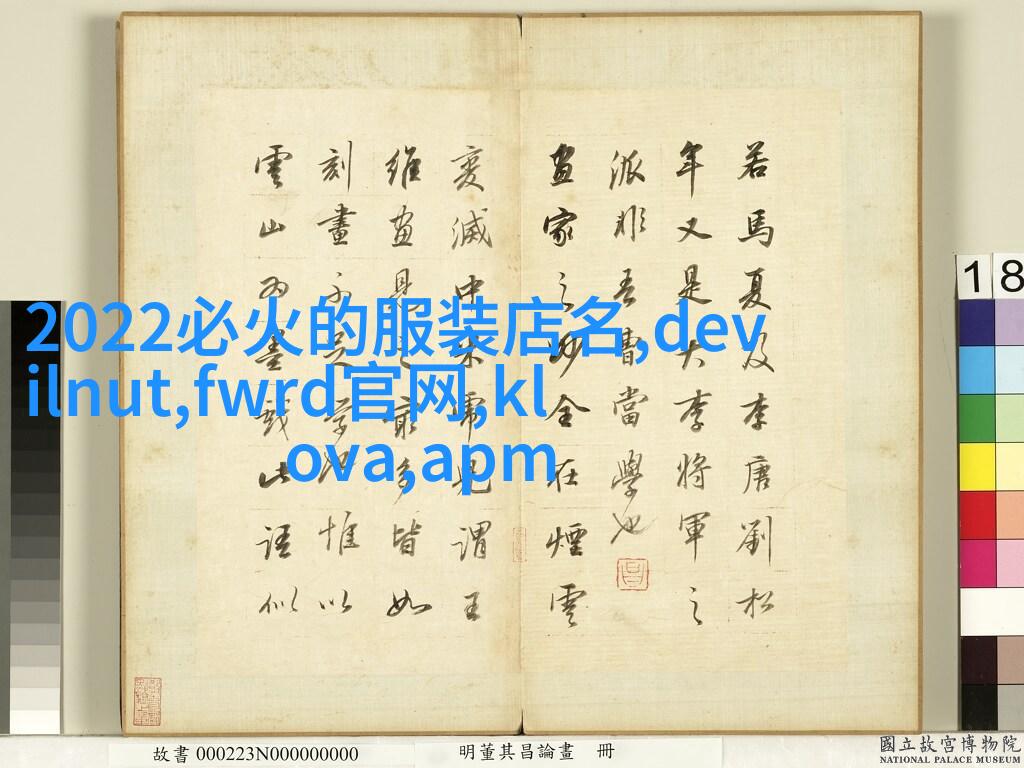 若馬夏及李唐劉松
年又是大李將軍之
派非吾曹當學也
畫家之妙全在煙雲
變滅中米虎兒謂王
維畫見之最多皆如
刻畫不足學也惟以
雲山為墨戲此語似
2022必火的服装店名,dev
ilnut,fwrd官网,kl
ova,apm
18
故書 000223N000000000
明董其昌論畫 冊
國立故宮博物院
NATIONAL PALACE MUSEUM